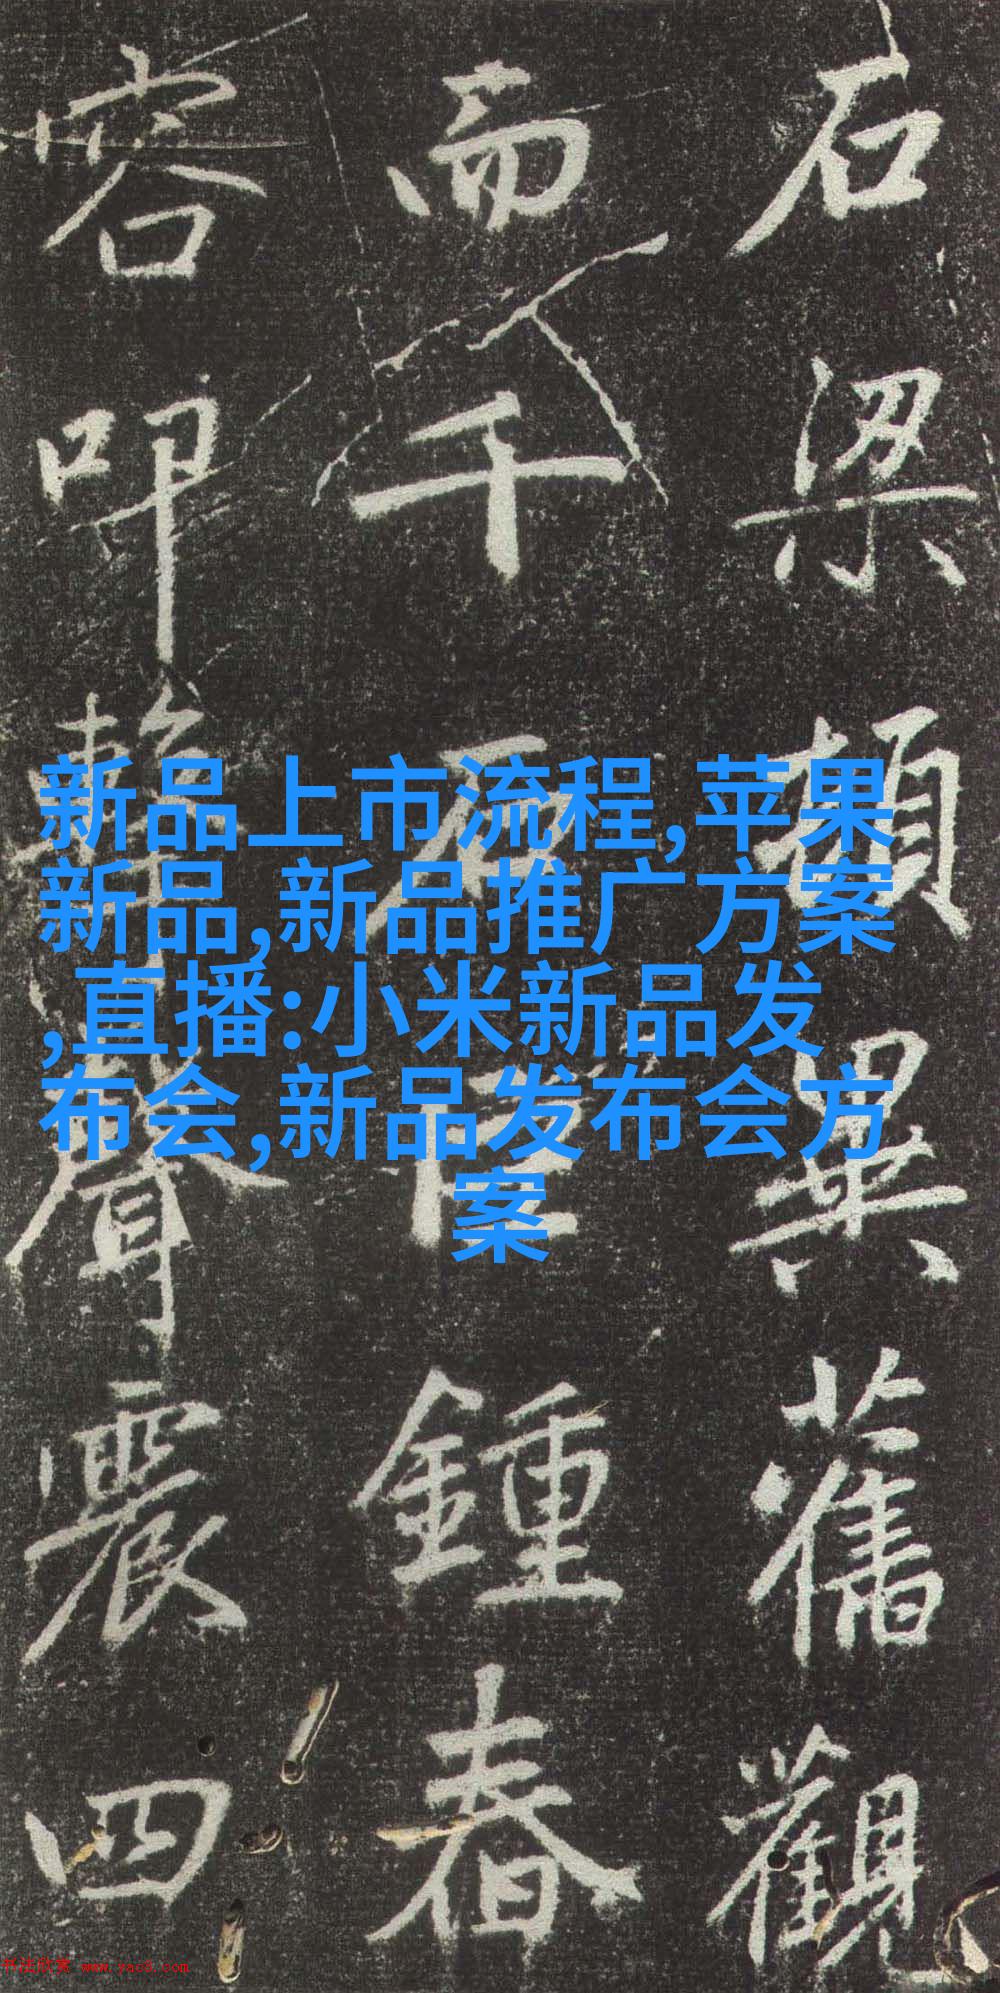 石梁頓異舊觀
而千石鍾春
容叩擊聲震四
新品上市流程,苹果
新品,新品推广方案
,直播:小米新品发
布会,新品发布会方
案
书法欣赏 www.yac8.com